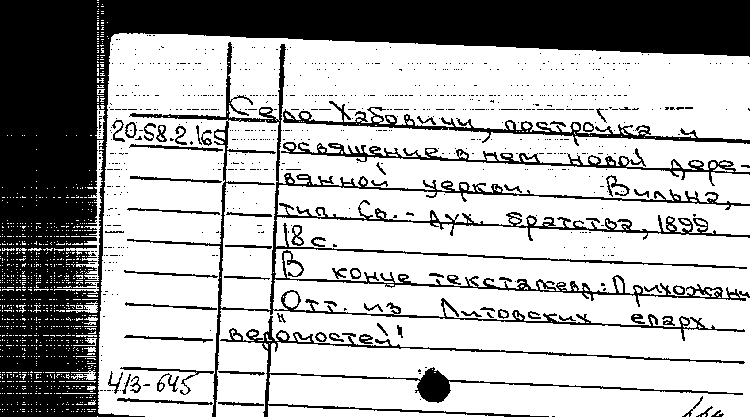 Село Хабовичи, постройка и
20.58.2.165
освящение в нем новой дере-
вянной церкви. Вильна,
тип. Св.-Дух. братства, 1899.
18 с.
В конце текста псевд.: Прихожани
Отт. из "Литовских епарх.
ведомостей".
413-645